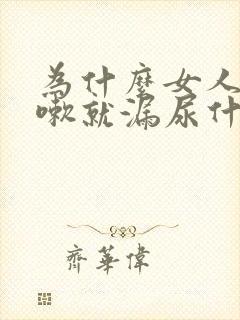 为什麼女人
嗽就漏尿什
齊華偉